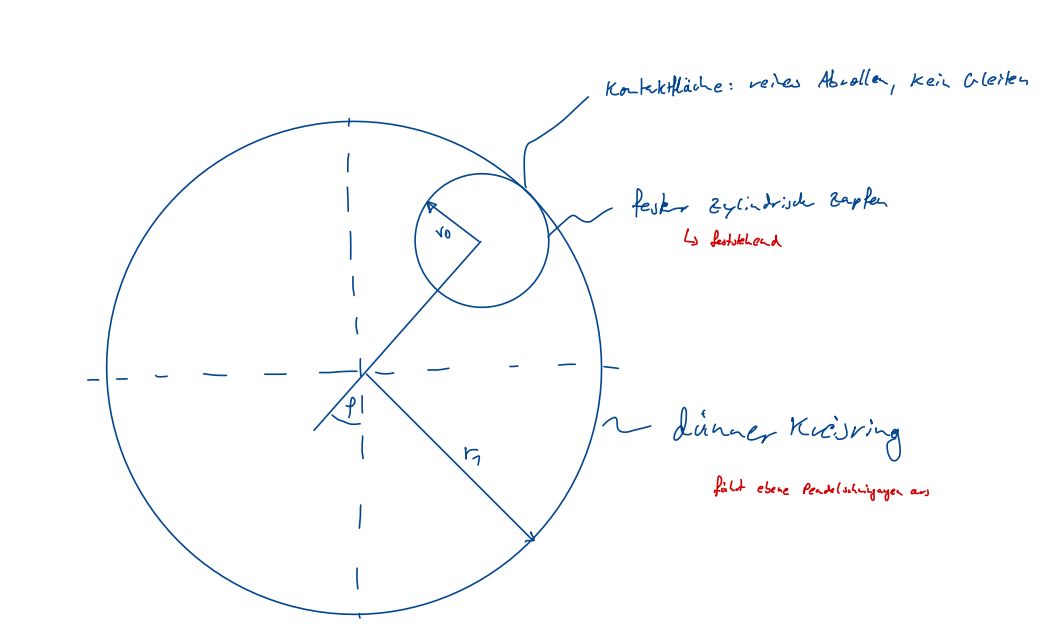 Kontaktfläche: reines Abrollen, kein Gleiten
fester zylindrisch Zapfen
↳ feststehend
r₀
φ
r₁
dünner Kreisring
führt ebene Pendelschwingungen aus